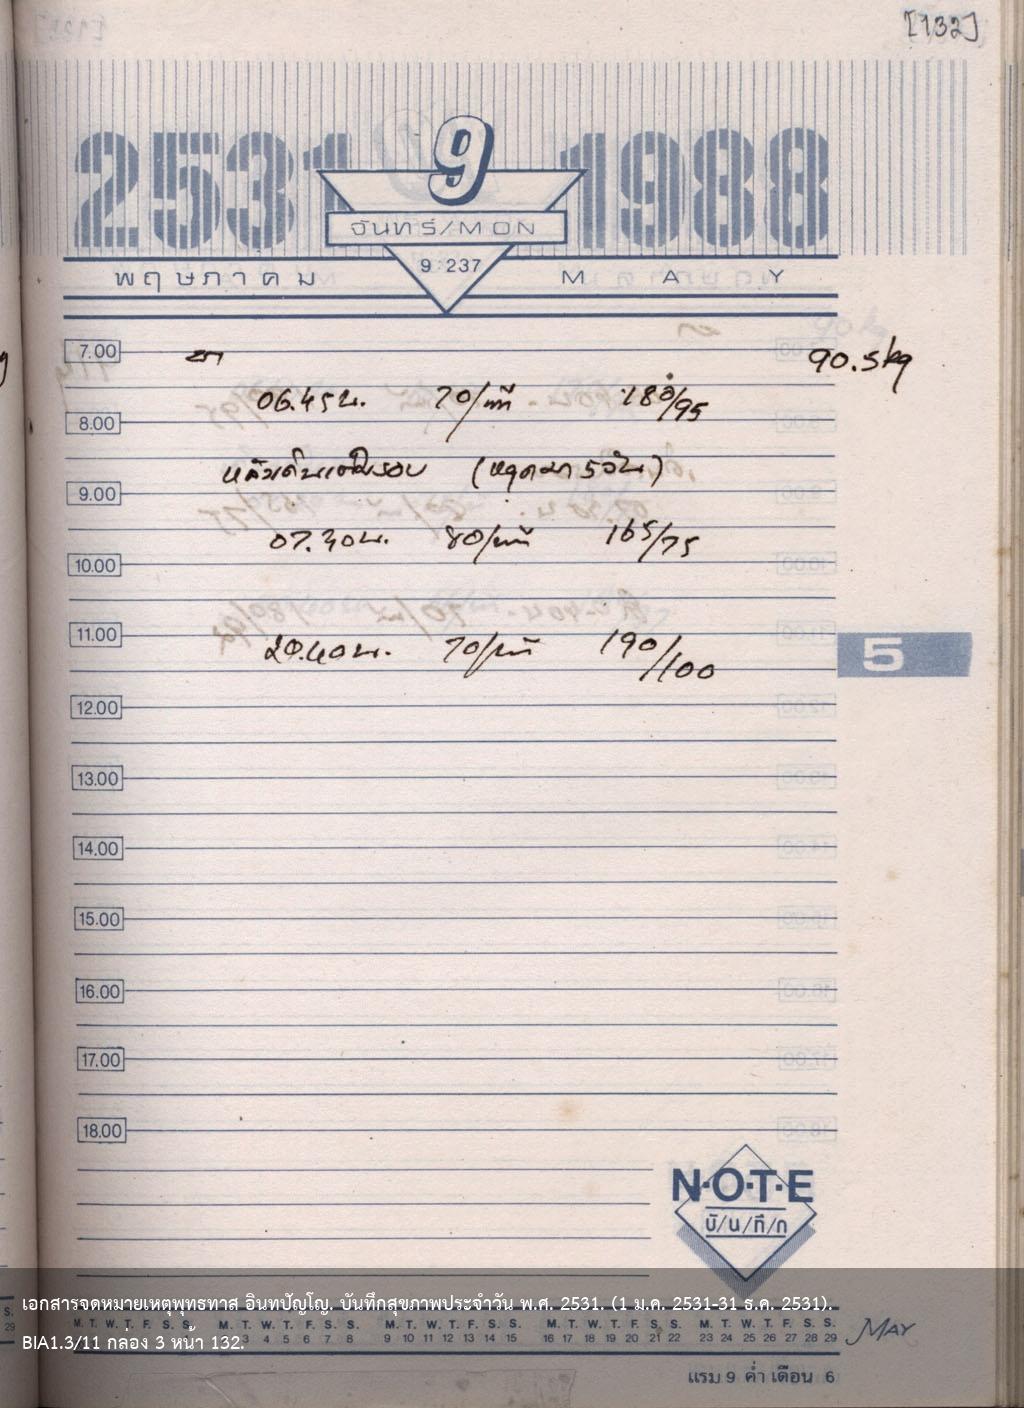 [132]
2531 9 1988
จันทร์/MON
9:237
พฤษภาคม MAY
7.00 90.5kg
06.45 น. 70/นาที 180/95
8.00
หลังเดิน (หยุดมา 5 วัน)
9.00
07.30 น. 80/นาที 165/75
10.00
11.00
5
20.40 น. 70/นาที 190/100
12.00
13.00
14.00
15.00
16.00
17.00
18.00
N·O·T·E
บั/น/ทึ/ก
เอกสารจดหมายเหตุพุทธทาส อินทปัญโญ. บันทึกสุขภาพประจำวัน พ.ศ. 2531. (1 ม.ค. 2531-31 ธ.ค. 2531).
M. T. W. T. F. S. S. M. T. W. T. F. S. S. M. T. W. T. F. S. S. M. T. W. T. F. S. S. M. T. W. T. F. S. S.
3 4 5 6 7 8 9 10 11 12 13 14 15 16 17 18 19 20 21 22 23 24 25 26 27 28 29 MAY
BIA1.3/11 กล่อง 3 หน้า 132.
แรม 9 ค่ำ เดือน 6